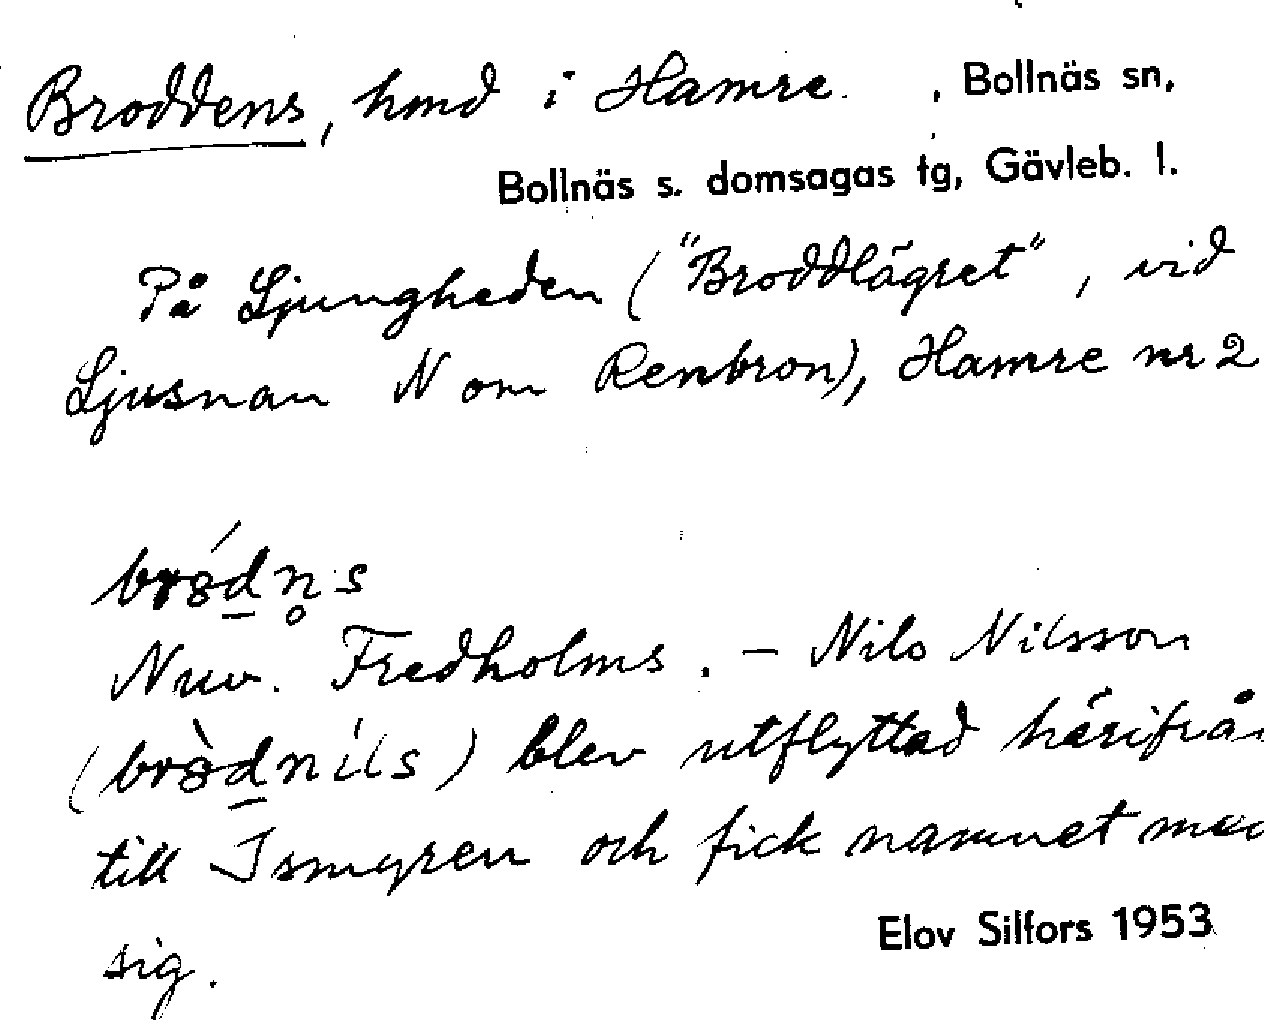 Broddens, hmd i Hamre. , Bollnäs sn,
Bollnäs s. domsagas tg, Gävleb. l.
På Ljungheden ("Broddlägret", vid
Ljusnan N om Renbron), Hamre nr 2
bródn̥s
Nuv. Fredholms. – Nils Nilsson
(bròdníls) blev utflyttad härifrån
till Ismyren och fick namnet med
sig.
Elov Silfors 1953